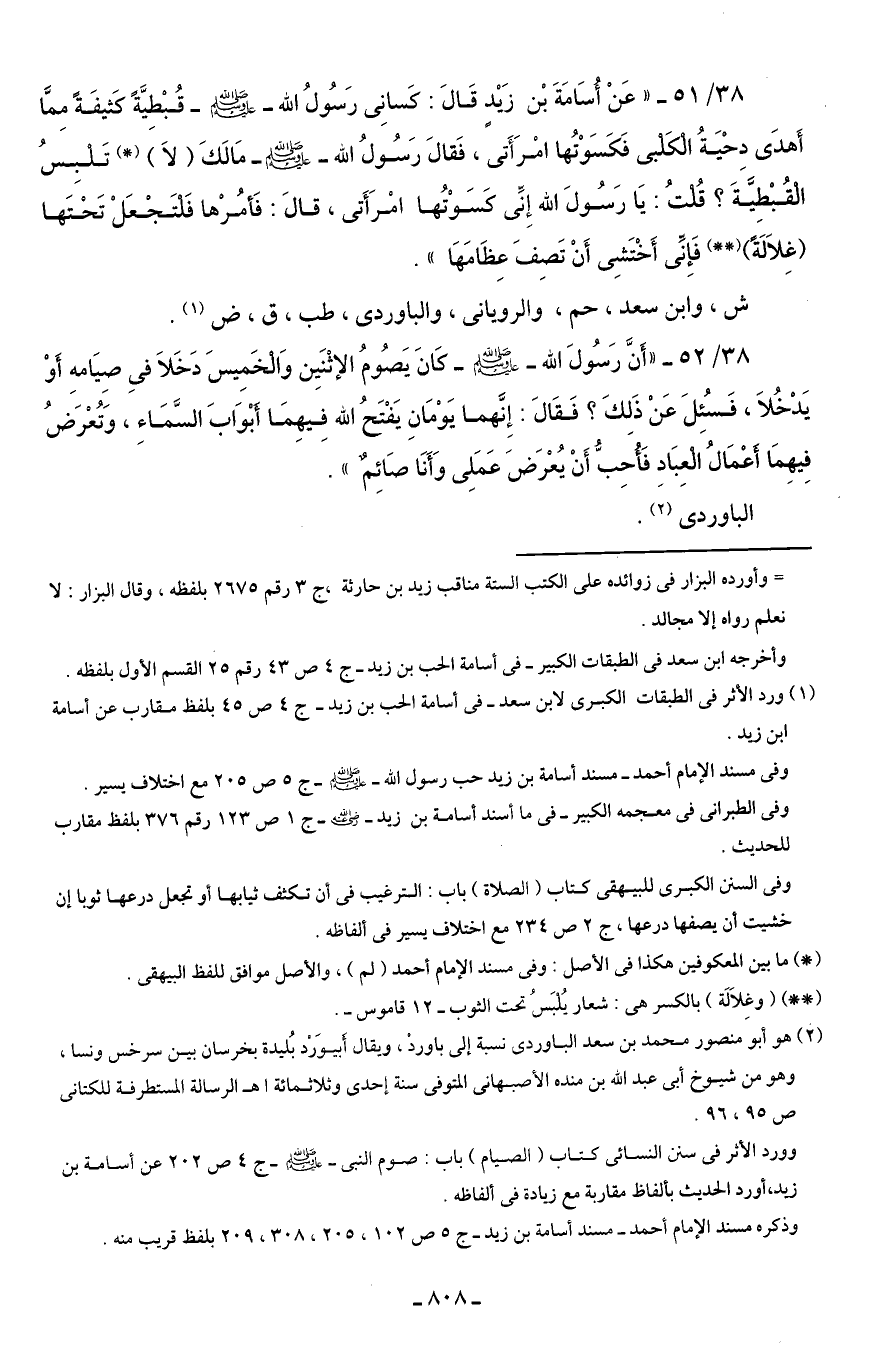 ٣٨/ ٥١ ـ « عَنْ أُسَامَةَ بْنِ زَيْدٍ قَالَ : كَسانِى رَسُولُ الله ـ ﷺ ـ قُبْطِيَّةً كَثِيفَةً مِمَّا
أَهدَى دِحْيَةُ الْكَلْبِى فَكَسَوْتُها امْرَأَتِى ، فَقالَ رَسُولُ الله ـ ﷺ ـ مَالَكَ ( لاَ ) (*) تَلْبِسُ
الْقُبْطِيَّةَ ؟ قُلْتُ : يا رَسُولَ الله إِنِّى كَسَوْتُها امْرَأَتِى ، قالَ : فَأمُرْها فَلْتَجْعَلْ تَحْتَها
(غِلاَلَةً)(**) فَإِنِّى أَخْتَشِى أَنْ تَصِفَ عِظَامَهَا » .
ش ، وابن سعد ، حم ، والرويانى ، والباوردى ، طب ، ق ، ض (١) .
٣٨/ ٥٢ ـ «أَنَّ رَسُولَ الله ـ ﷺ ـ كَانَ يَصُومُ الإِثْنَينِ وَالْخَمِيسَ دَخَلاَ فى صِيَامِهِ أَوْ
يَدْخُلاَ ، فَسُئِلَ عَنْ ذَلِكَ ؟ فَقَالَ : إِنَّهما يَوْمَانِ يَفْتَحُ الله فِيهِمَا أَبْوَابَ السَّمَاءِ ، وَتُعْرَضُ
فِيهِمَا أَعْمَالُ الْعِبَادِ فَأُحِبُّ أَنْ يُعْرَضَ عَمَلِى وَأَنَا صَائِمٌ » .
الباوردى (٢) .
= وأورده البزار فى زوائده على الكتب الستة مناقب زيد بن حارثة ،ج ٣ رقم ٢٦٧٥ بلفظه ، وقال البزار : لا
نعلم رواه إلا مجالد .
وأخرجه ابن سعد فى الطبقات الكبير ـ فى أسامة الحب بن زيد ـ ج ٤ ص ٤٣ رقم ٢٥ القسم الأول بلفظه .
(١) ورد الأثر فى الطبقات الكبرى لابن سعد ـ فى أسامة الحب بن زيد ـ ج ٤ ص ٤٥ بلفظ مقارب عن أسامة
ابن زيد .
وفى مسند الإمام أحمد ـ مسند أسامة بن زيد حب رسول الله ـ ﷺ ـ ج ٥ ص ٢٠٥ مع اختلاف يسير .
وفى الطبرانى فى معجمه الكبير ـ فى ما أسند أسامة بن زيد ـ رضي الله عنه ـ ج ١ ص ١٢٣ رقم ٣٧٦ بلفظ مقارب
للحديث .
وفى السنن الكبرى للبيهقى كتاب ( الصلاة ) باب : الترغيب فى أن تكثف ثيابها أو تجعل درعها ثوبا إن
خشيت أن يصفها درعها ، ج ٢ ص ٢٣٤ مع اختلاف يسير فى ألفاظه .
(*) ما بين المعكوفين هكذا فى الأصل : وفى مسند الإمام أحمد ( لم ) ، والأصل موافق للفظ البيهقى .
(**) ( وغِلاَلَة ) بالكسر هى : شعار يُلْبَسُ تحت الثوب ـ ١٢ قاموس ـ .
(٢) هو أبو منصور محمد بن سعد الباوردى نسبة إلى باوردْ ، ويقال أَبِيوَرْد بُليدة بخرسان بين سرخس ونسا ،
وهو من شيوخ أبى عبد الله بن منده الأصبهانى المتوفى سنة إحدى وثلاثمائة اهـ الرسالة المستطرفة للكتانى
ص ٩٥ ، ٩٦ .
وورد الأثر فى سنن النسائى كتاب ( الصيام ) باب : صوم النبى ـ ﷺ ـ ج ٤ ص ٢٠٢ عن أسامة بن
زيد،أورد الحديث بألفاظ مقاربة مع زيادة فى ألفاظه .
وذكره مسند الإمام أحمد ـ مسند أسامة بن زيد ـ ج ٥ ص ١٠٢ ، ٢٠٥ ، ٣٠٨ ، ٢٠٩ بلفظ قريب منه .
ـ ٨٠٨ ـ